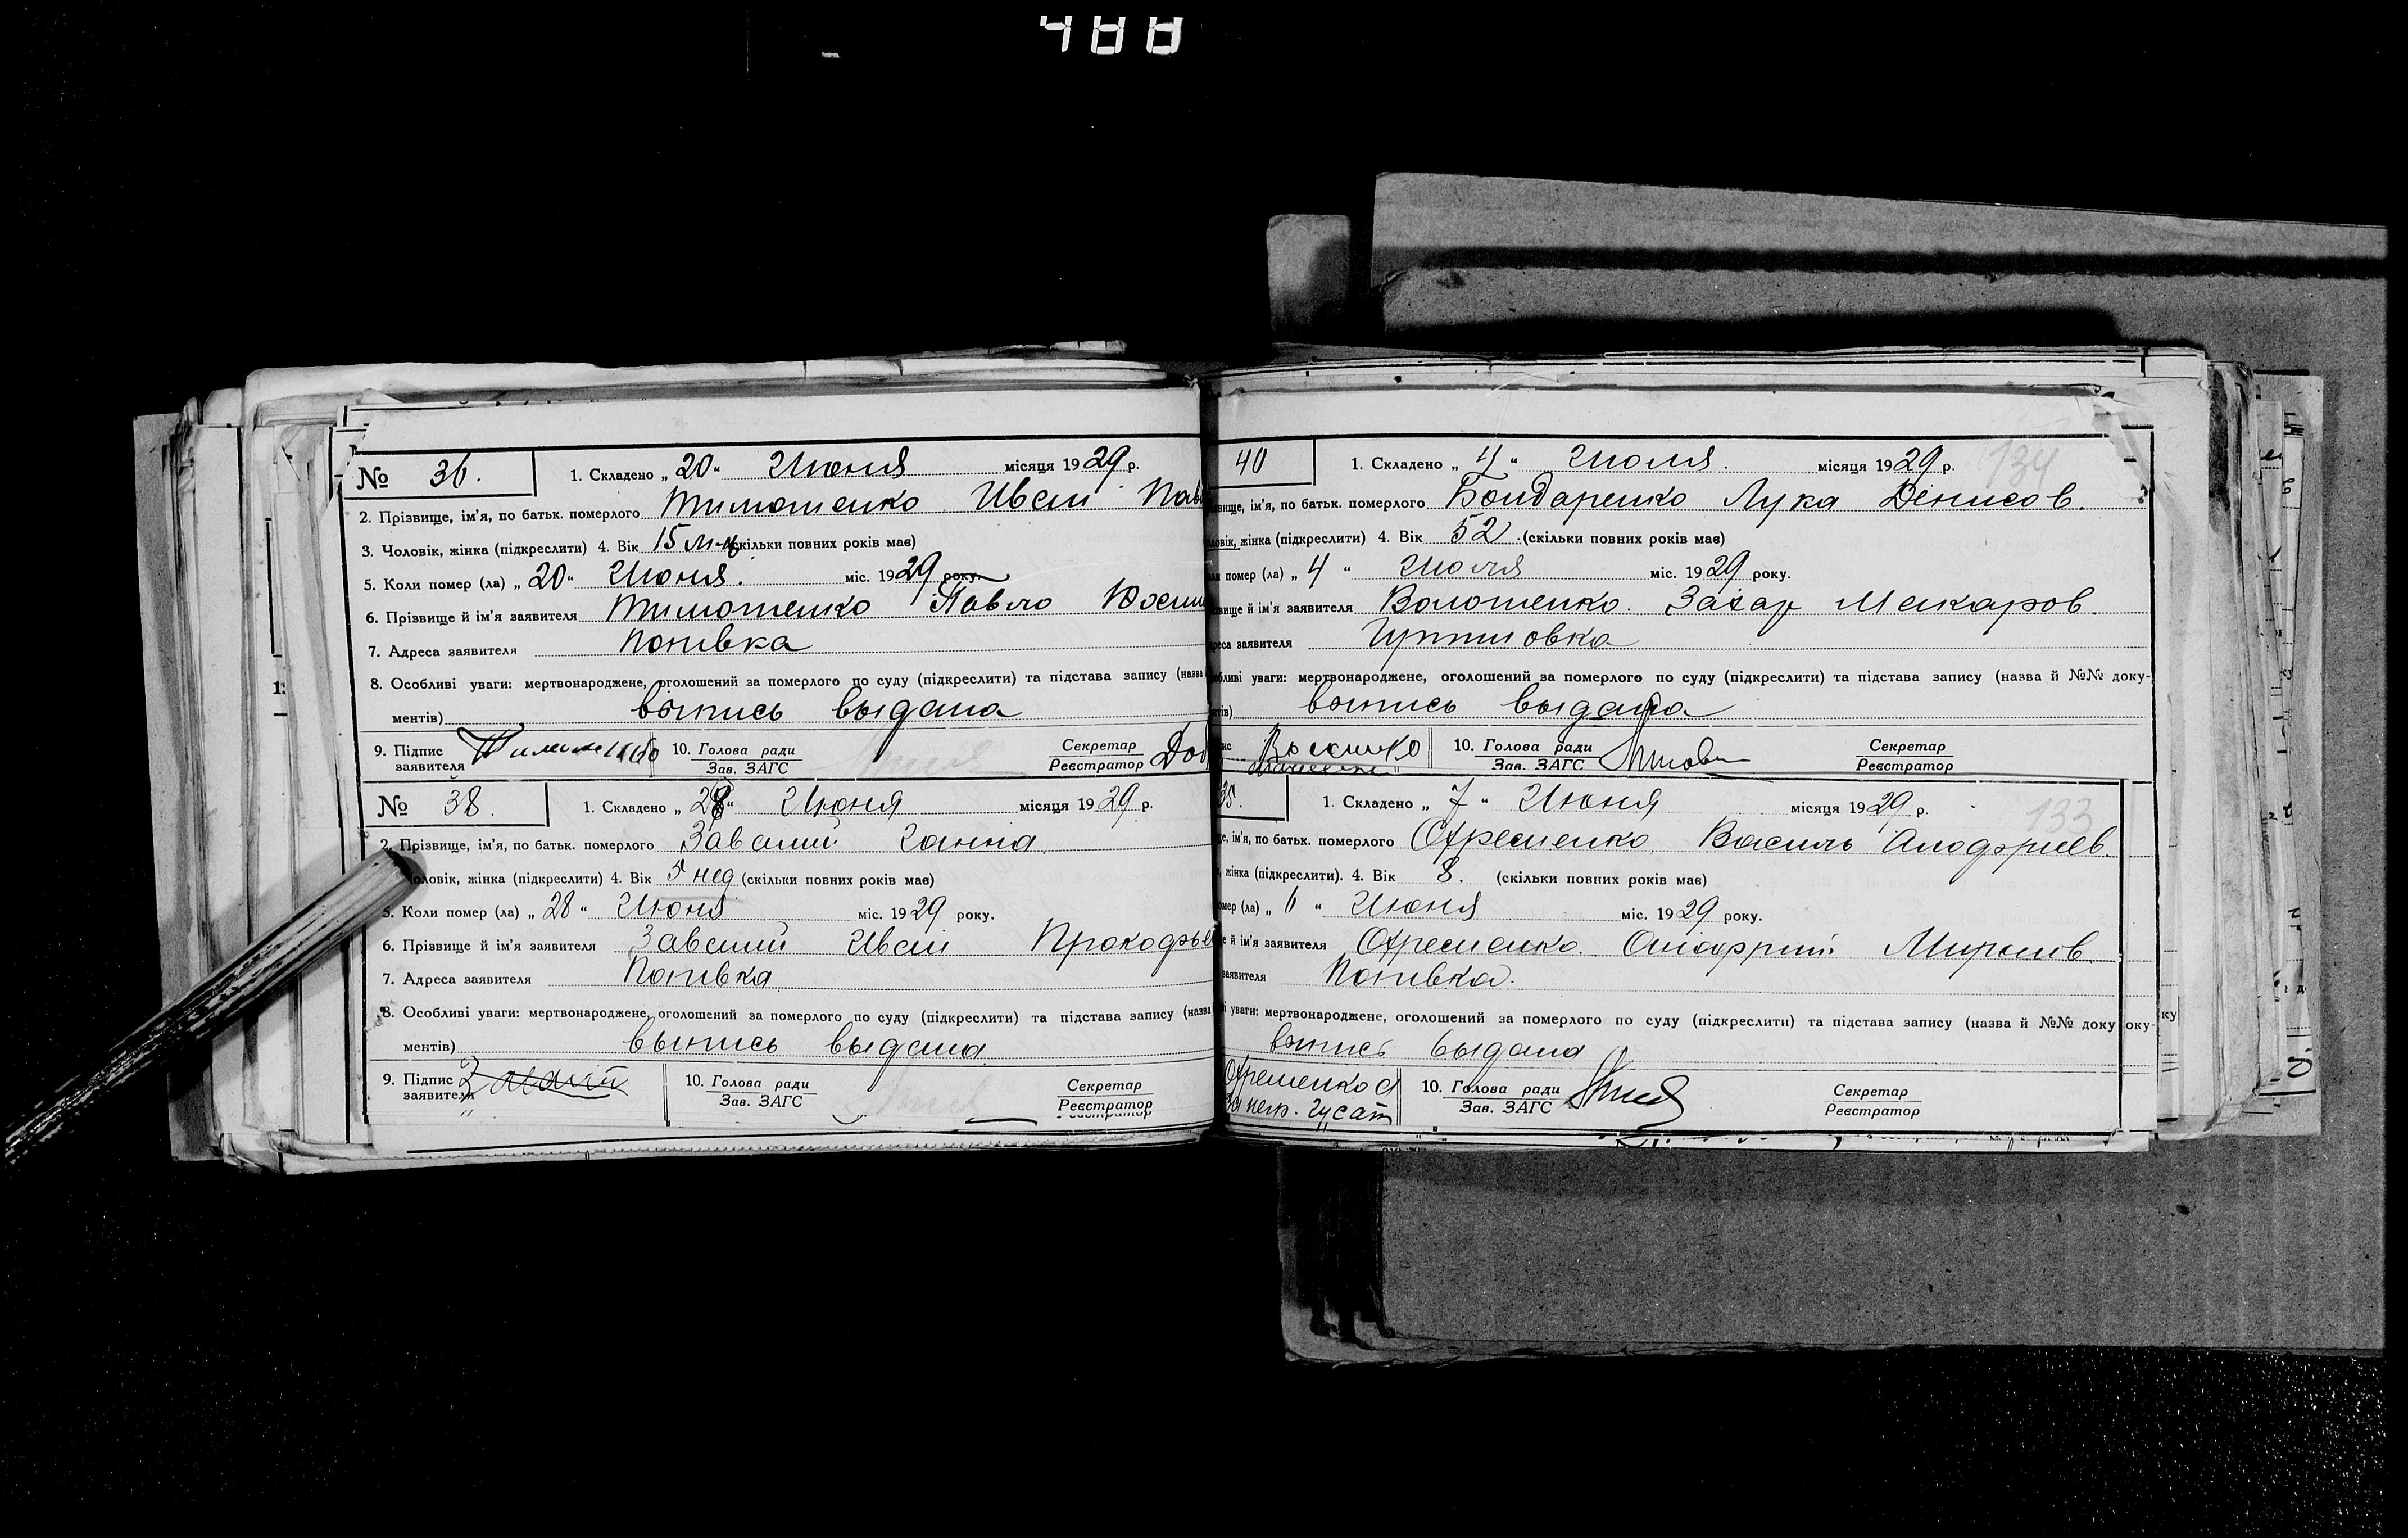 488
№ 36. 1. Складено „20" Июня місяця 1929 р.
2. Прізвище, ім'я, по батьк. померлого Тимошенко Иван Пав
3. Чоловік, жінка (підкреслити) 4. Вік 15 м-ц (скільки повних років має)
5. Коли помер (ла) „20" Июня. міс. 1929 року.
6. Прізвище й ім'я заявителя Тимошенко Павло
7. Адреса заявителя Попивка
8. Особливі уваги: мертвонароджене, оголошений за померлого по суду (підкреслити) та підстава запису (назва
ментів) выпись выдана
9. Підпис заявителя Тимошенко 10. Голова ради Зав. ЗАГС Секретар Реєстратор
№ 38. 1. Складено „28" Июня місяця 1929 р.
2. Прізвище, ім'я, по батьк. померлого Завалий Ганна.
оловік, жінка (підкреслити) 4. Вік 5 нед (скільки повних років має)
5. Коли помер (ла) „28" Июня міс. 1929 року.
6. Прізвище й ім'я заявителя Завалий Иван Прокофье
7. Адреса заявителя Попивка
8. Особливі уваги: мертвонароджене, оголошений за померлого по суду (підкреслити) та підстава запису (назва
ментів) выпись выдана
9. Підпис заявителя 10. Голова ради Зав. ЗАГС Секретар Реєстратор
40 1. Складено „4" Июля. місяця 1929 р. 134
звище, ім'я, по батьк. померлого Бондаренко Лука Денисов.
ловік, жінка (підкреслити) 4. Вік 52 (скільки повних років має)
помер (ла) „4" Июля міс. 1929 року.
звище й ім'я заявителя Волошенко. Захар Макаров.
реса заявителя
обливі уваги: мертвонароджене, оголошений за померлого по суду (підкреслити) та підстава запису (назва й №№ доку-
нтів) выпись выдана
10. Голова ради Зав. ЗАГС Секретар Реєстратор
35. 1. Складено „7" Июня місяця 1929 р. 133
ще, ім'я, по батьк. померлого Охременко Василь
жінка (підкреслити). 4. Вік 8. (скільки повних років має)
омер (ла) „6" Июня міс. 1929 року.
е й ім'я заявителя Охременко.
заявителя Попивка.
і уваги: мертвонароджене, оголошений за померлого по суду (підкреслити) та підстава запису (назва й №№ доку
выпись выдана
Охременко
10. Голова ради Зав. ЗАГС Секретар Реєстратор